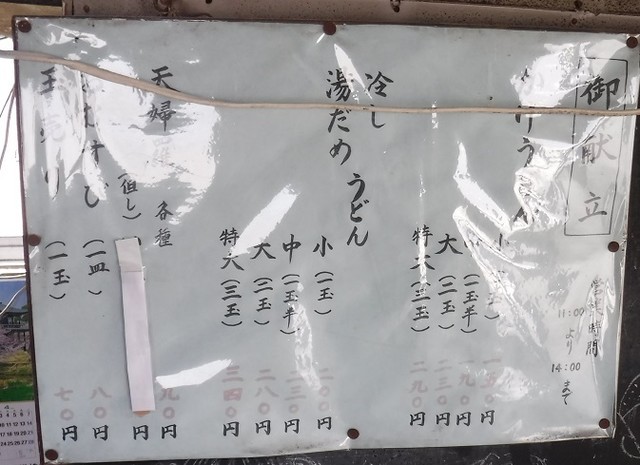 御献立
営業時間
11:00
より
14:00
まで
かけうどん
小
一五〇円
(一玉半) 一九〇円
大(二玉) 二三〇円
特大(三玉) 二九〇円
冷し
湯だめ うどん
小(一玉) 二〇〇円
中(一玉半) 二三〇円
大(二玉) 二八〇円
特大(三玉) 三四〇円
天婦 各種 九〇円
(但し) 円
むすび(一皿) 八〇円
玉 り(一玉) 七〇円